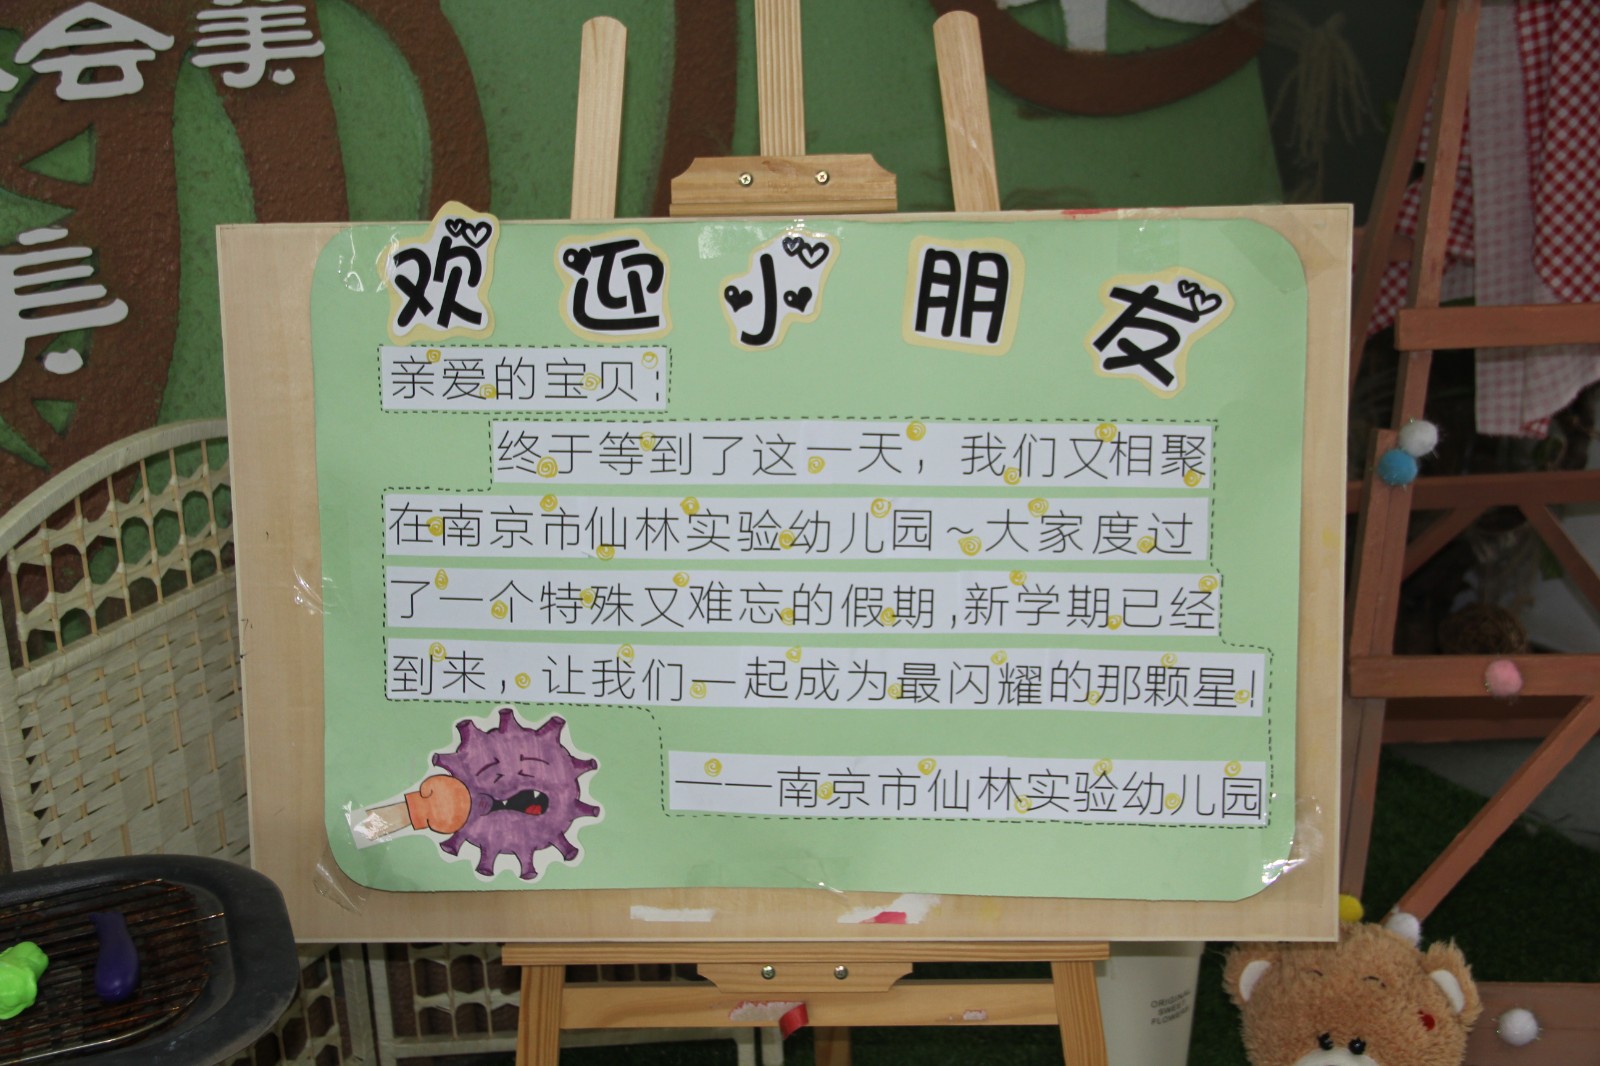 会美
美
欢迎小朋友
亲爱的宝贝：
终于等到了这一天，我们又相聚
在南京市仙林实验幼儿园~大家度过
了一个特殊又难忘的假期,新学期已经
到来，让我们一起成为最闪耀的那颗星!
——南京市仙林实验幼儿园